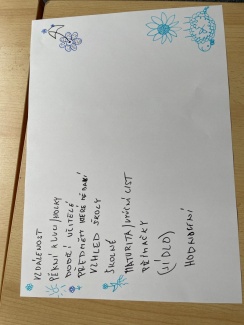 VZDÁLENOST
PĚKNÍ KLUCI/HOLKY
DOBŘÍ UČITELÉ
PŘEDMĚTY KTERÉ MĚ BAVÍ
VZHLED ŠKOLY
ŠKOLNÉ
MATURITA/VÝUČNÍ LIST
PŘIJÍMAČKY
(JÍDLO)
HODNOCENÍ